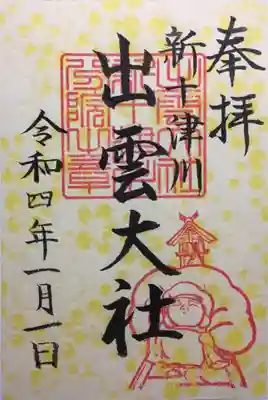 奉拝
新十津川
出雲大社
令和四年一月一日